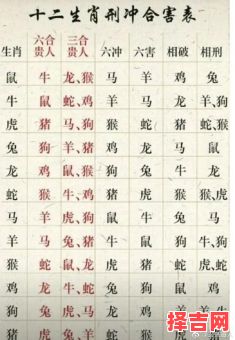 十二生肖刑冲合害表
生肖 六合贵人 三合贵人 六冲 六害 相破 相刑
鼠 牛 龙、猴 马 羊 鸡 兔
牛 鼠 蛇、鸡 羊 马 龙 羊、狗
虎 猪 马、狗 猴 蛇 猪 蛇、猴
兔 狗 羊、猪 鸡 龙 马 鼠
龙 鸡 鼠、猴 狗 兔 牛 龙
蛇 猴 牛、鸡 猪 虎 猴 猴、虎
马 羊 虎、狗 鼠 牛 兔 马
羊 马 兔、猪 牛 鼠 狗 牛、狗
猴 蛇 鼠、龙 虎 猪 蛇 蛇、虎
鸡 龙 牛、蛇 兔 狗 鼠 鸡
狗 兔 虎、马 龙 鸡 羊
猪 虎 兔、羊 蛇 猴
择吉网